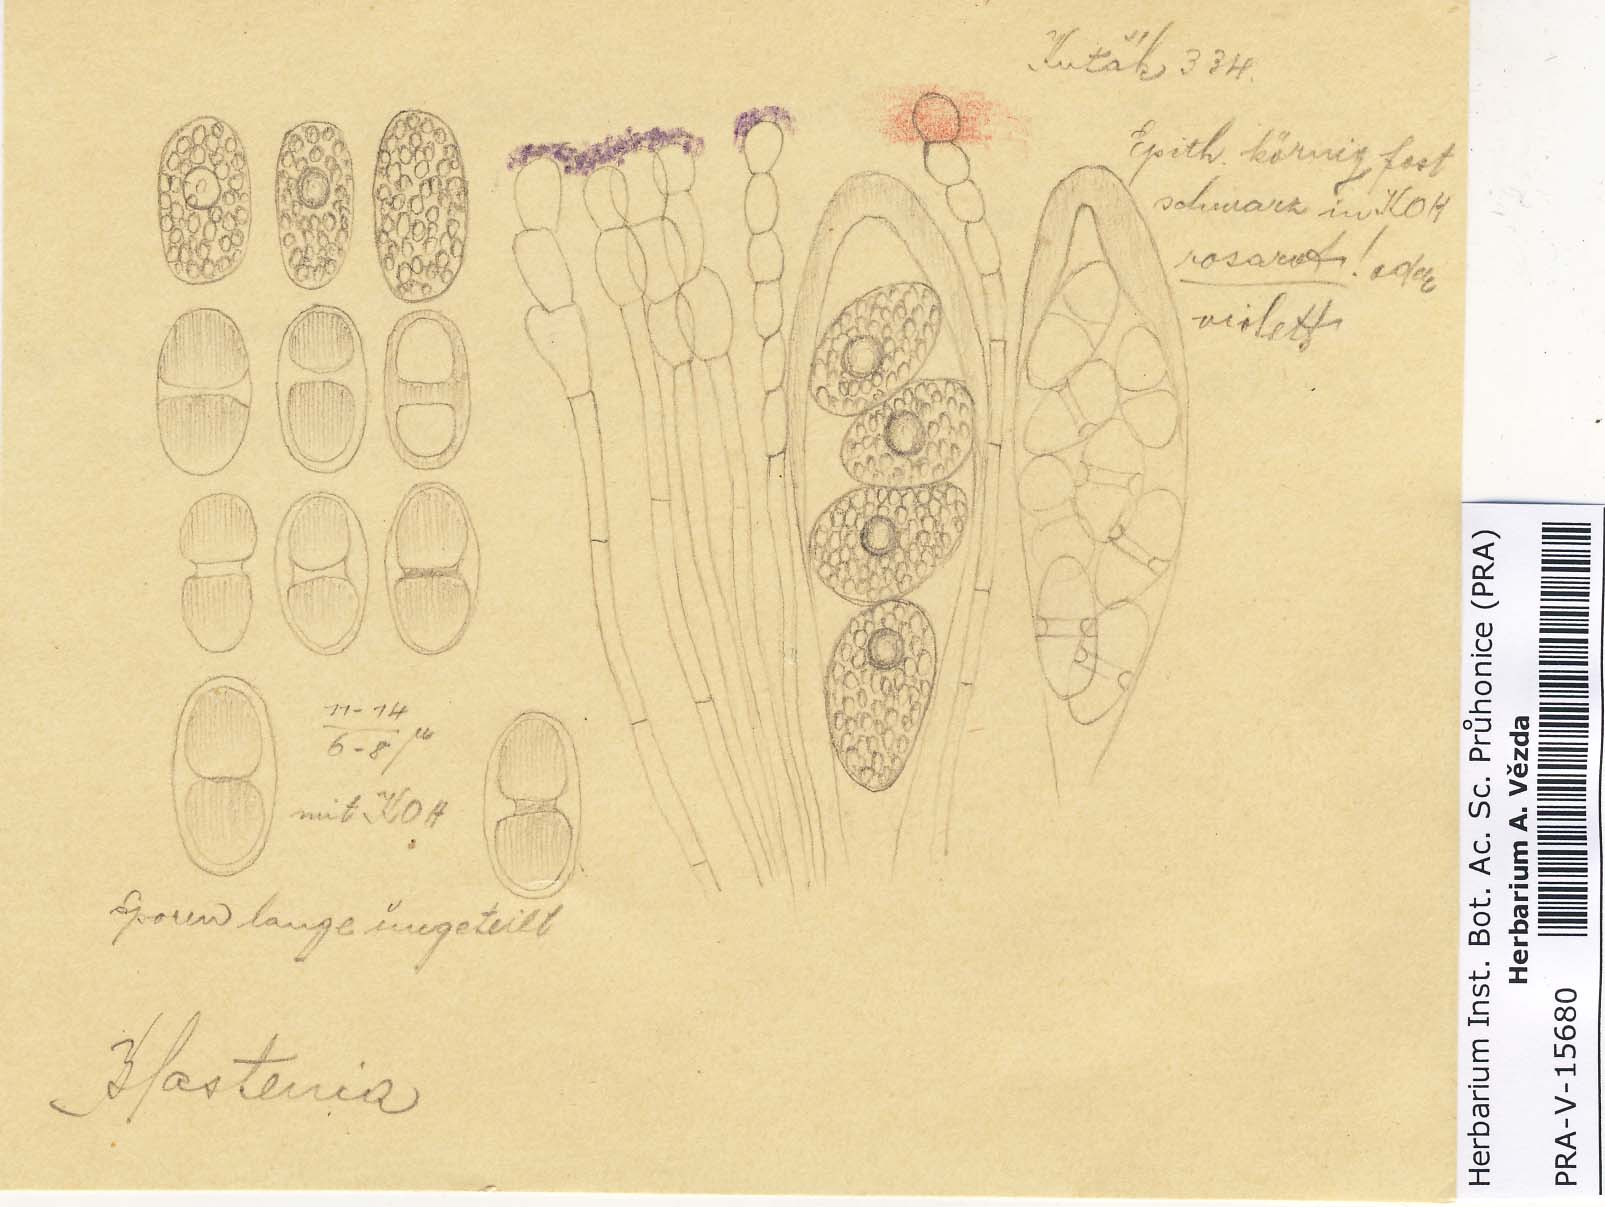 Kuťák 334.
Epith. körnig fast
schwarz in KOH
rosarot! oder
violett
11-14
6-8 µ
mit KOH
Sporen lange ungeteilt
Blastenia
Herbarium Inst. Bot. Ac. Sc. Průhonice (PRA)
Herbarium A. Vězda
PRA-V-15680